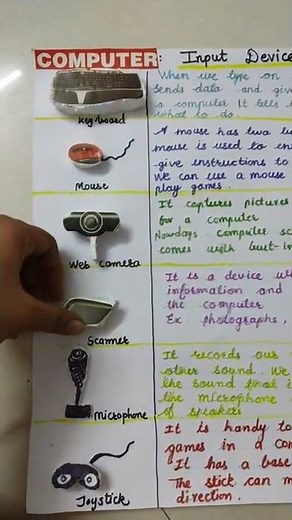 COMPUTER: Input Device
When we type on
sends data and giv
a computer It tells
what to do.
Key-board
A mouse has two bu
mouse is used to en
give instructions to
We can use a mouse
play games.
Mouse
It captures pictures
for a computer
Nowdays computer sc
comes with built-in
Web camera
It is a device wh
information and
the computer
Ex: photographs,
Scanner
It records our
other sound. We
the sound
the microphone
of speakers
Microphone
It is handy to
games in a com
It has a base
The stick can m
direction.
Joystick